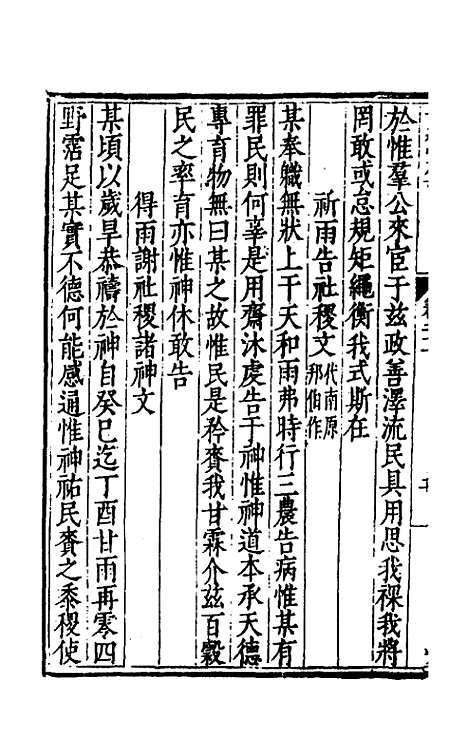 於惟羣公來宦于兹政善澤流民具用思我祼我將
罔敢或怠規矩繩衡我式斯在
祈雨告社稷文代南原邦伯作
某奉職無狀上干天和雨弗時行三農告病惟某有
罪民則何辜是用齋沐虔告于神惟神道本承天德
專育物無曰某之故惟民是矜賚我甘霖介兹百穀
民之率育亦惟神休敢告
得雨謝社稷諸神文
某頃以歲旱恭禱於神自癸巳迄丁酉甘雨再零四
野霑足某實不德何能感通惟神祐民賚之黍稷使